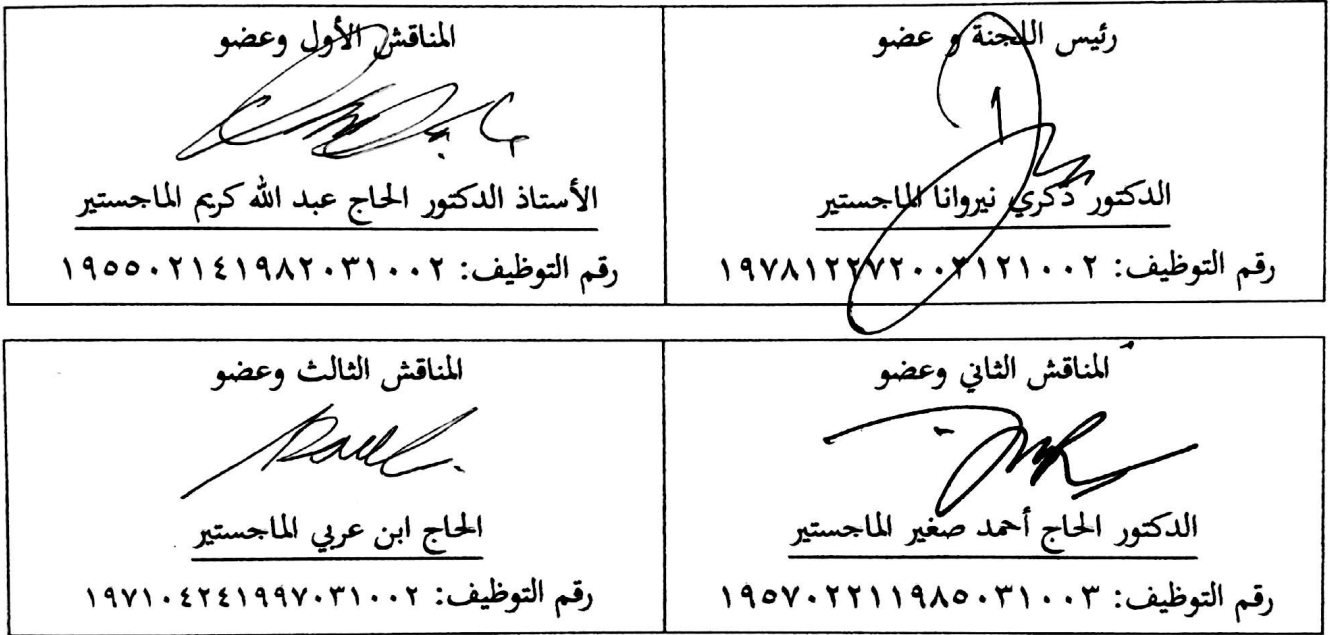 رئيس اللجنة و عضو
الدكتور ذكري نيروانا الماجستير
رقم التوظيف: ١٩٧٨١٢٢٧٢٠٠٣١٢١٠٠٢
المناقش الأول وعضو
الأستاذ الدكتور الحاج عبد الله كريم الماجستير
رقم التوظيف: ١٩٥٥٠٢١٤١٩٨٢٠٣١٠٠٢
المناقش الثاني وعضو
الدكتور الحاج أحمد صغير الماجستير
رقم التوظيف: ١٩٥٧٠٢٢١١٩٨٥٠٣١٠٠٣
المناقش الثالث وعضو
الحاج ابن عربي الماجستير
رقم التوظيف: ١٩٧١٠٤٢٤١٩٩٧٠٣١٠٠٢